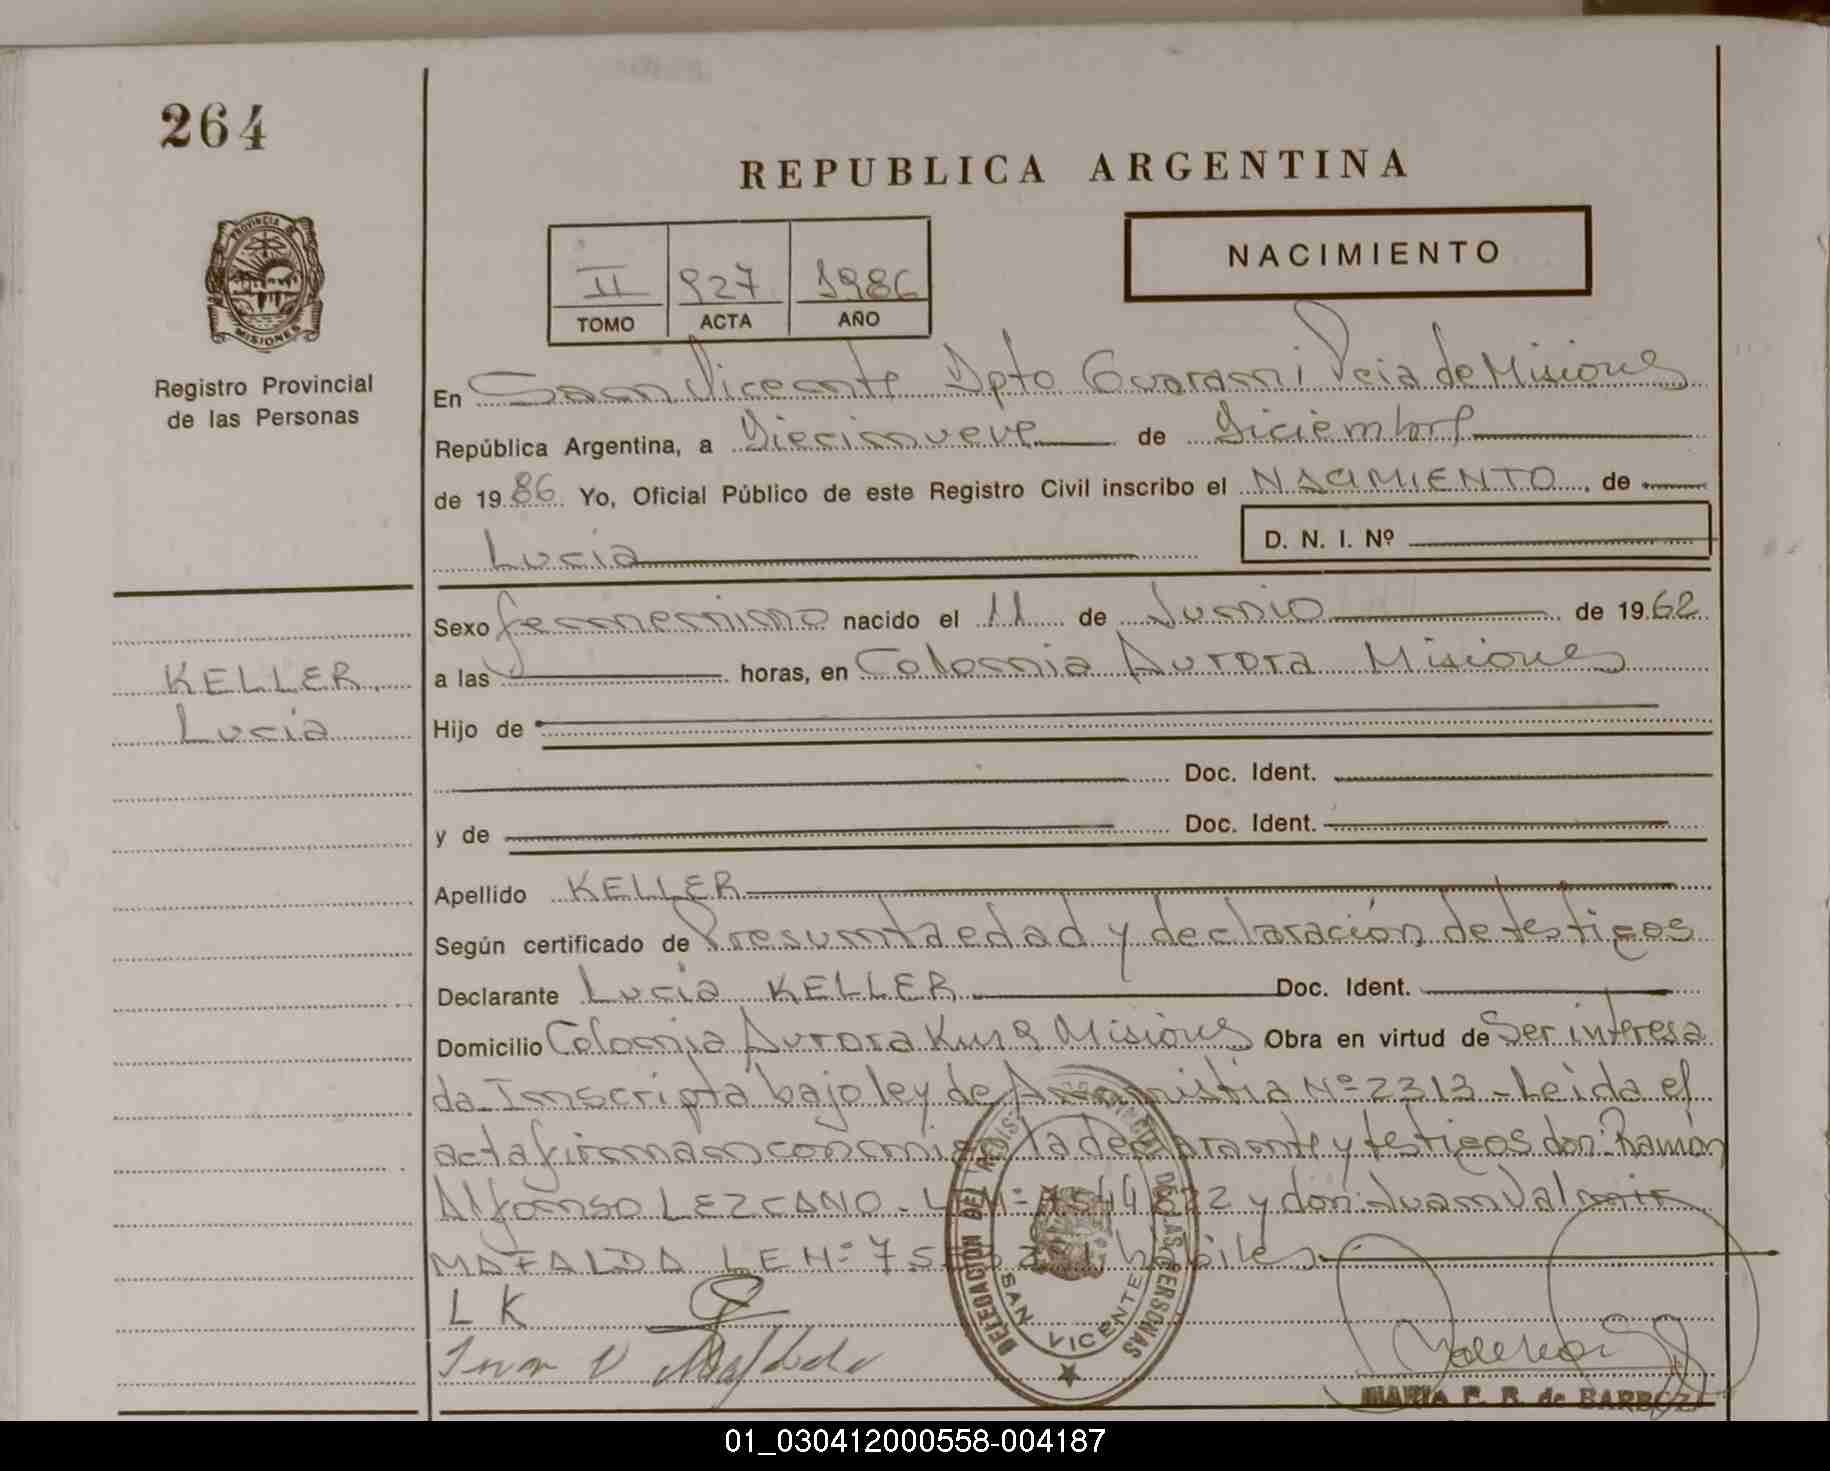 264
REPUBLICA ARGENTINA
PROVINCIA DE
MISIONES
Registro Provincial
de las Personas
II 927 1986
TOMO ACTA AÑO
NACIMIENTO
En San Vicente Dpto Guarani Pcia de Misiones
República Argentina, a Diecinueve de Diciembre
de 1986 Yo, Oficial Público de este Registro Civil inscribo el NACIMIENTO, de
Lucia
D. N. I. Nº
Sexo femenino nacido el 11 de Junio de 1962
a las horas, en Colonia Aurora Misiones
KELLER
Lucia
Hijo de
Doc. Ident.
y de Doc. Ident.
Apellido KELLER
Según certificado de Presunta edad y declaración de testigos
Declarante Lucia KELLER Doc. Ident.
Domicilio Colonia Aurora Misiones Obra en virtud de Ser interesa
da Inscripta bajo ley de Nº 2313 - Leida el
acta firman conmigo la declarante y testigos don: Ramón
Alfonso LEZCANO - y don: Juan Valmir
MAFALDA LE Nº 7 habiles
L K
Juan V Mafalda
DELEGACION DEL REGIST. PROVINCIAL DE LAS PERSONAS
SAN VICENTE
MARIA E. R. de BARBOZA
01_030412000558-004187